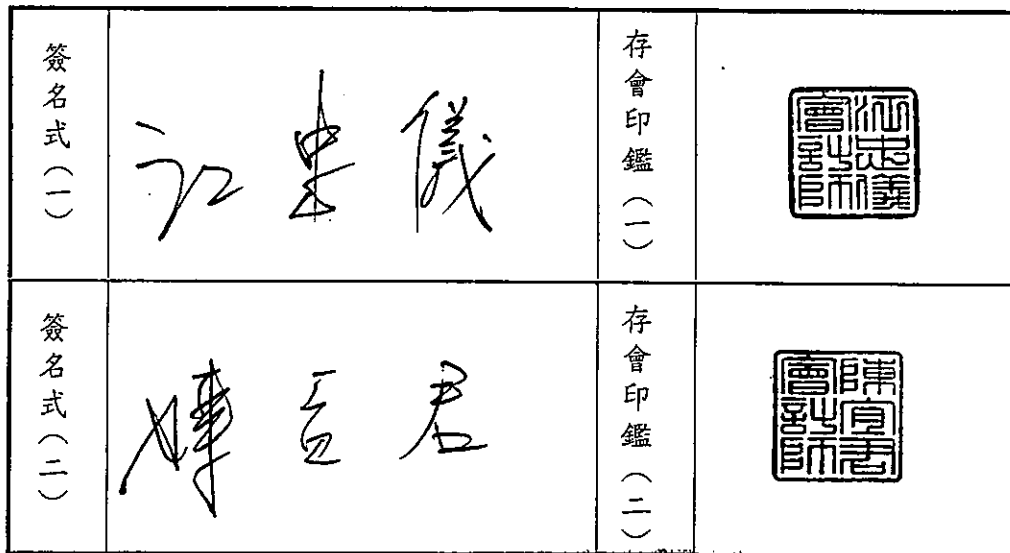 簽名式（一）
江忠儀
存會印鑑（一）
江忠儀
會計師
簽名式（二）
陳宜君
存會印鑑（二）
陳宜君
會計師